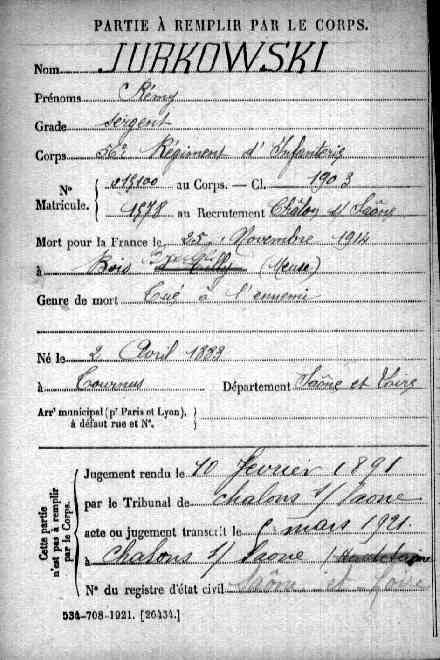 PARTIE À REMPLIR PAR LE CORPS.
Nom JURKOWSKI
Prénoms Rémy
Grade Sergent
Corps 56e Régiment d'Infanterie
N° Matricule. { 015100 au Corps. — Cl. 1903
1578 au Recrutement Châlon s/ Saône
Mort pour la France le 25 Novembre 1914
à Bois (Meuse)
Genre de mort Tué à l'ennemi
Né le 2 Avril 1883
à Tournus Département Saône et Loire
Arrt municipal (pr Paris et Lyon), à défaut rue et N°. }
Cette partie n'est pas à remplir par le Corps.
Jugement rendu le 10 Fevrier 1891
par le Tribunal de Chalons s/ Saone
acte ou jugement transcrit le mars 1921.
à Chalons s/ Saone
N° du registre d'état civil Saône et Loire
534-708-1921. [26434.]